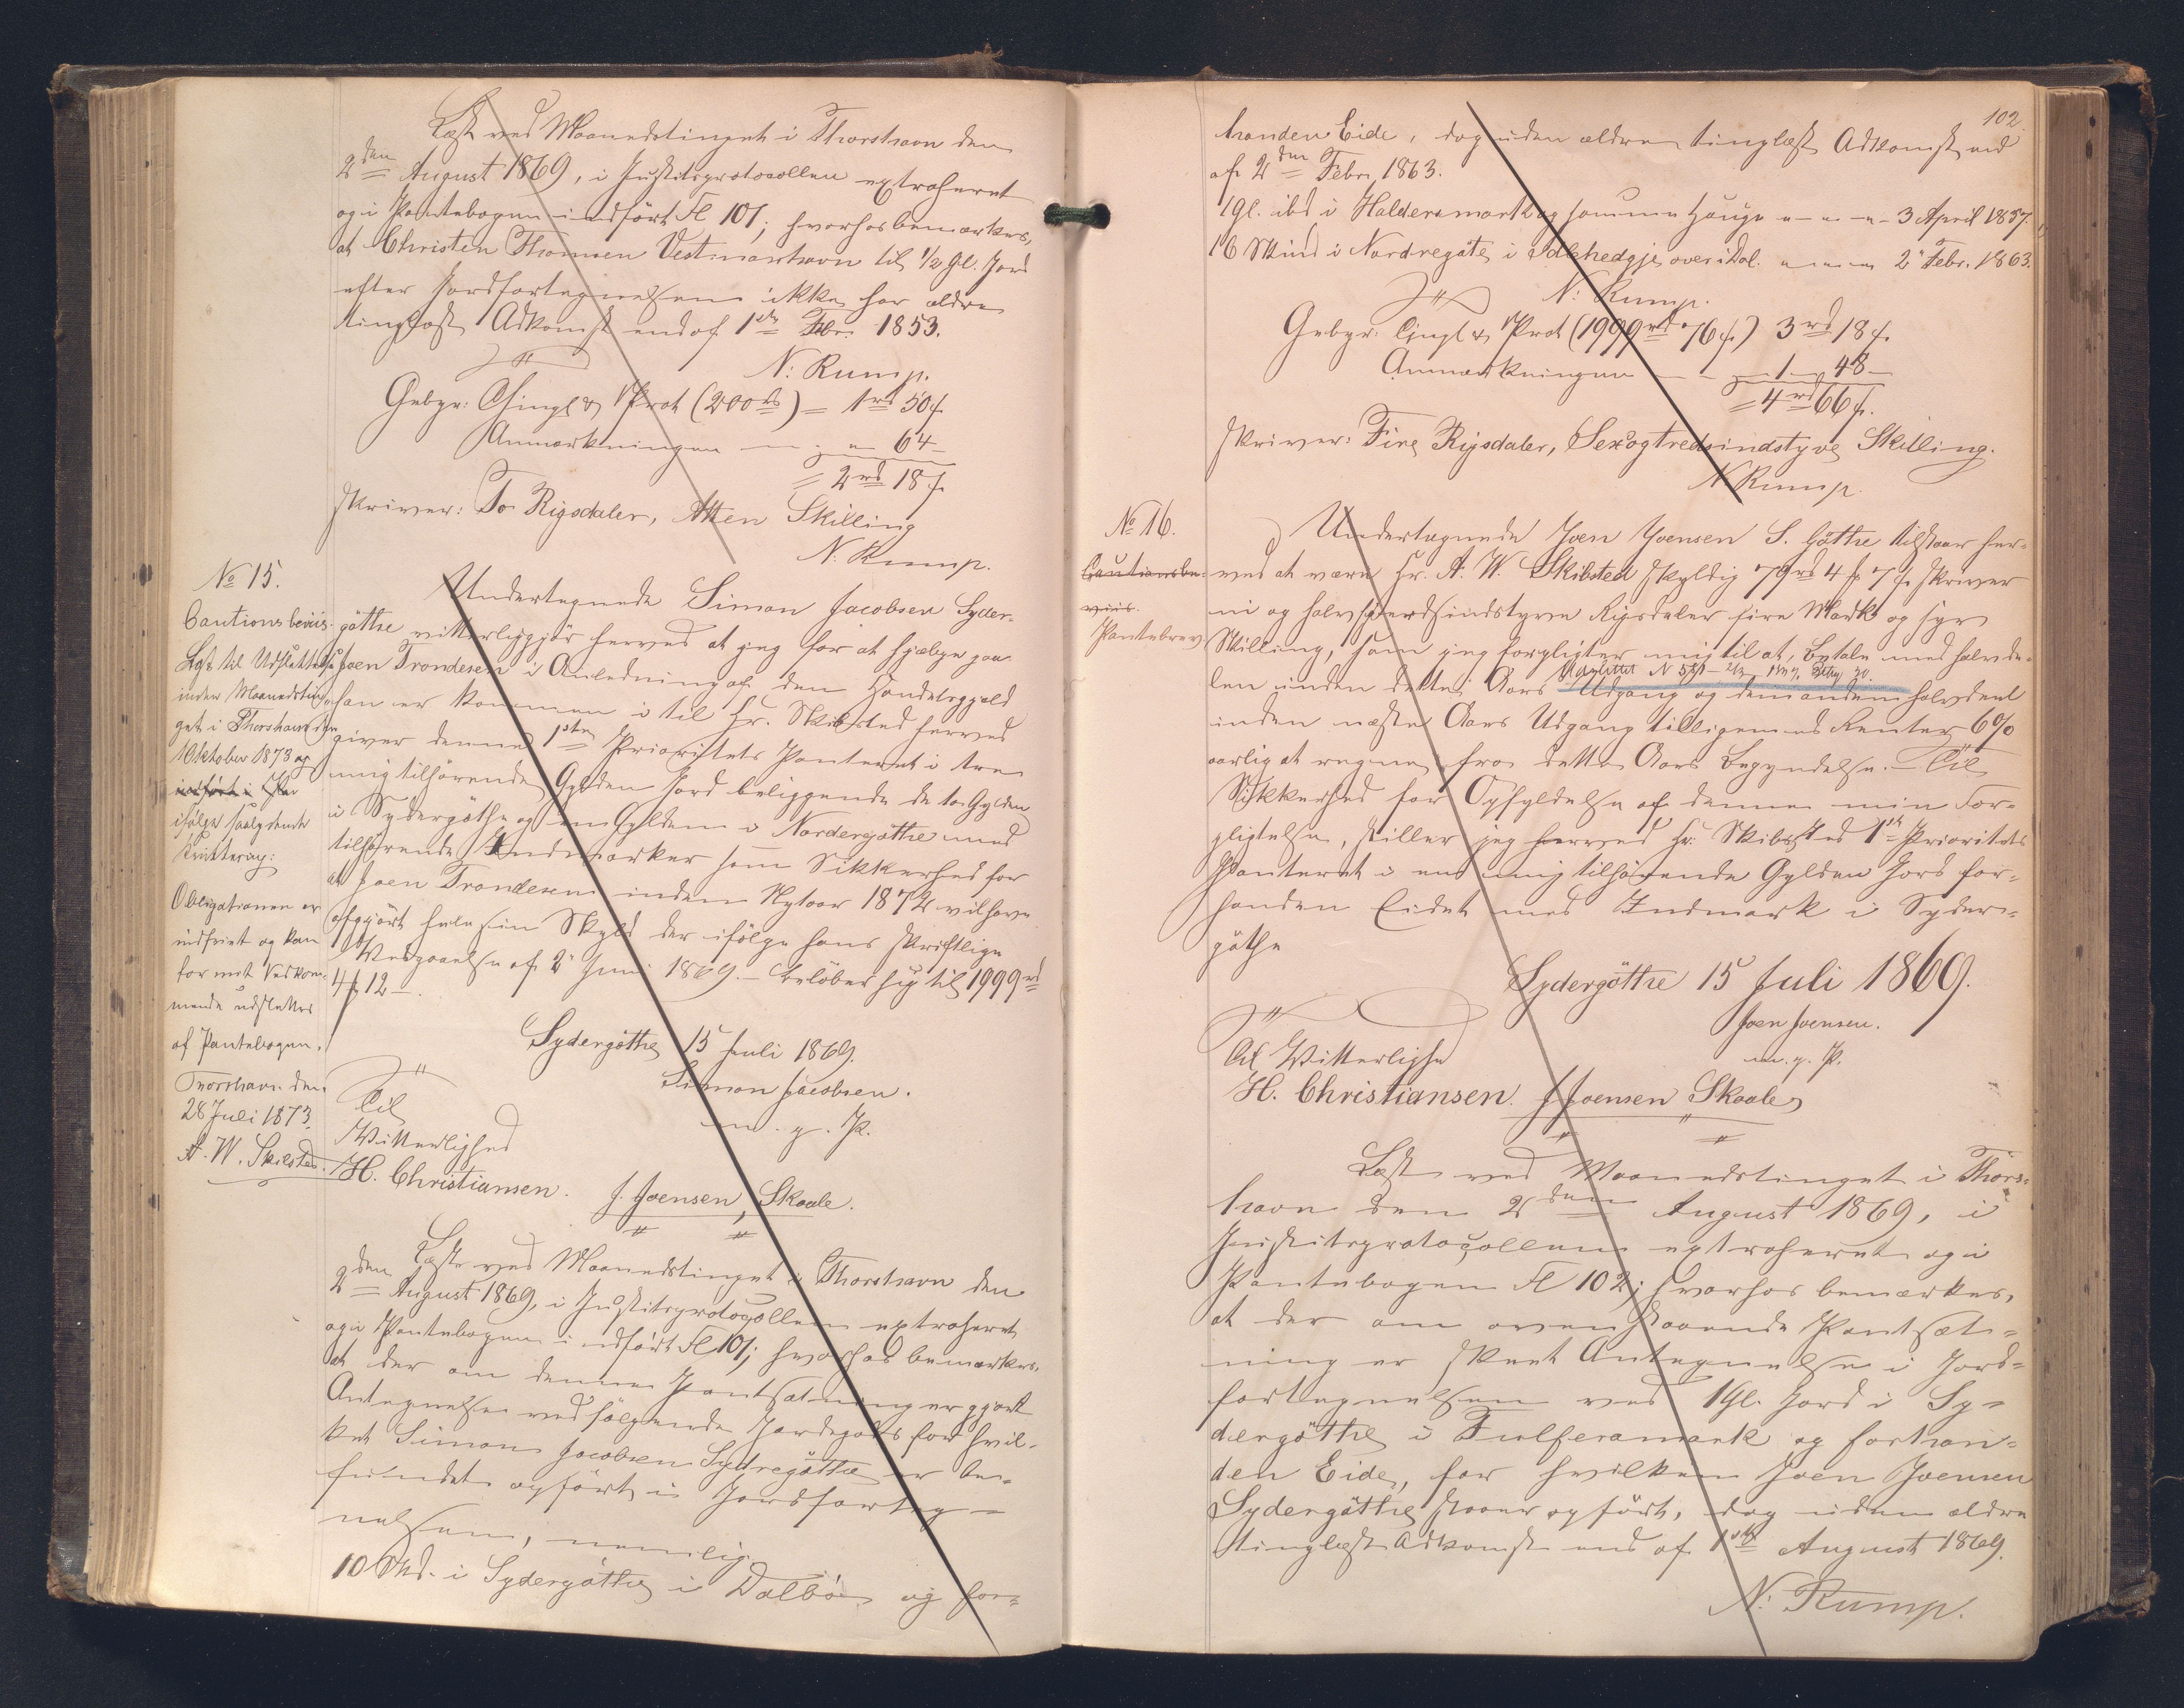 Læst ved Maanedstinget i Thorshavn den
2den August 1869, i Justitsprotocollen extraheret
og i Pantebogen indført Fl 101; hvorhos bemærkes,
at Christen Thomsen Vestmanhavn til 1/2 Gl. Jord
efter Jordfortegnelsen ikke har ældre
tinglæst Adkomst end af 1ste Febr. 1853.
N: Rump.
Gebyr: Tingl & Prot (200rd) = 1rd 50 s.
Anmærkningen — " — 64 —
= 2rd 18 s.
skriver: To Rigsdaler, Atten Skilling
N. Rump.
No 15.
Cautionsbeviis.
Læst til Udslettelse
inden Maanedstin-
get i Thorshavn den
1 Oktober 1873 og
ifølge saalydende
Kvittering:
Obligationen er
indfriet og kan
for mit Vedkom-
mende udslettes
af Pantebogen.
Thorshavn den
28 Juli 1873.
A. W. Skibsted.
Undertegnede Simon Jacobsen Syder-
göthe vitterliggjör herved at jeg for at hjælpe paa
Joen Trondesen i Anledning af den Handelsgjæld
han er kommen i til Hr. Skibsted herved
giver denne 1ste Prioritets Panteret i tre
mig tilhörende Gylden Jord beliggende de to Gylden
i Sydergöthe og en Gylden i Nordergöthe med
tilhörende Indmarker som Sikkerhed for
at Joen Trondesen inden Nytaar 1872 vil have
afgjört hele sin Skyld der ifölge hans skriftlige
Vedgaaelse af 2' Juni 1869. — belöber sig til 1999rd
4 ₻ 12 —.
Sydergöthe 15 Juli 1869.
Simon Jacobsen.
m. p. P.
Til
Vitterlighed
H. Christiansen. J. Joensen, Skaale.
Læst ved Maanedstinget i Thorshavn den
2den August 1869, i Justitsprotocollen extraheret
og i Pantebogen indført Fl 101; hvorhos bemærkes,
at der om denne Pantsætning er gjort
Antegnelse ved følgende Jordegods for hvil-
ket Simon Jacobsen Sydregöthe er be-
fundet opført i Jordforteg-
nelsen, nemlig
10 Skd. i Sydergöthe i Dalbö og for-
102.
handen Eide, dog uden ældre tinglæst Adkomst end
af 2den Febr. 1863.
1 Gl. ibd i Haldersmark og samme Hauge " — " — " — 3 April 1857.
16 Skind i Nordregöte i over i Dal. " — " — " 2' Febr. 1863.
N: Rump.
Gebyr: Tingl & Prot (1999rd 76 s.) 3rd 18 s.
Anmærkningen — — 1 — 48 —
= 4rd 66 s.
skriver: Fire Rigsdaler, Sexogtredsindstyve Skilling.
N. Rump.
No 16.
Cautionsbe-
viis.
Pantebrev
Undertegnede Joen Joensen S. Göthe tilstaaer her-
ved at være Hr. A. W. Skibsted skyldig 79rd 4 ₻ 7 s. skriver
ni og halvfjerdsindstyve Rigsdaler fire Mark og syv
Skilling, som jeg forpligter mig til at betale med halvde-
Udslettet N
len inden dette Aars Udgang og den anden halvdeel
inden næste Aars Udgang tilligemed Renter 6%
aarlig at regne fra dette Aars Begyndelse. — Til
Sikkerhed for Opfyldelse af denne min For-
pligtelse, stiller jeg herved Hr. Skibsted 1ste Prioritets
Panteret i en mig tilhörende Gylden Jord for-
handen Eidet med Indmark i Syder-
göthe
Sydergöthe 15 Juli 1869.
Joen Joensen.
m. p. P.
Til Vitterlighed
H. Christiansen. J Joensen Skaale
Læst ved Maanedstinget i Thors-
havn den 2den August 1869, i
Justitsprotocollen extraheret og i
Pantebogen Fl 102; hvorhos bemærkes,
at der om ovenstaaende Pantsæt-
ning er skeet Antegnelse i Jord-
fortegnelsen ved 1 Gl. Jord i Sy-
dergöthe i Fulferamark og forhan-
den Eide, for hvilken Joen Joensen
Sydergöthe staaer opført, dog uden ældre
tinglæst Adkomst end af 1ste August 1869.
N: Rump.